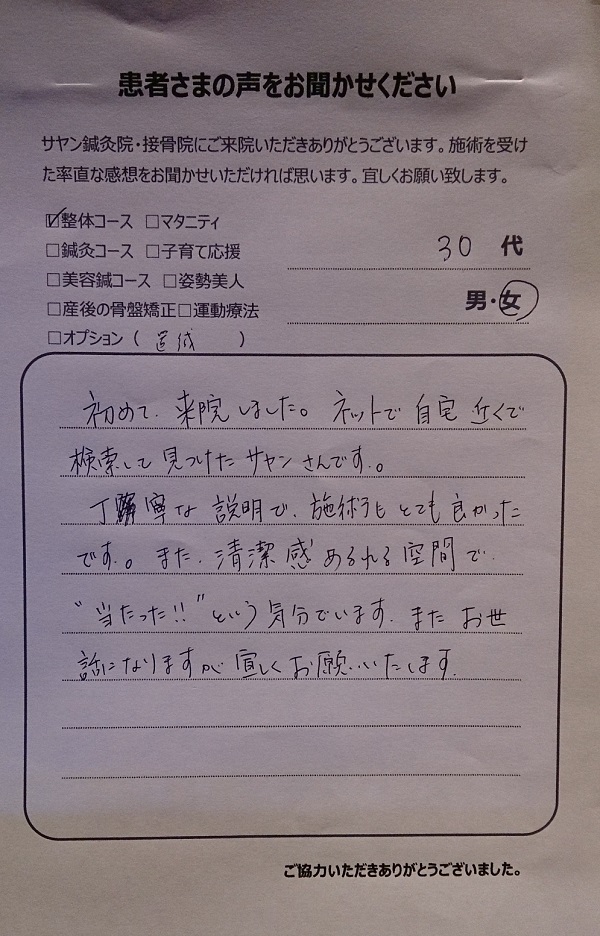 患者さまの声をお聞かせください
サヤン鍼灸院・接骨院にご来院いただきありがとうございます。施術を受け
た率直な感想をお聞かせいただければ思います。宜しくお願い致します。
☑整体コース □マタニティ
□鍼灸コース □子育て応援
30 代
□美容鍼コース □姿勢美人
男・女
□産後の骨盤矯正□運動療法
□オプション ( )
初めて、来院しました。ネットで自宅近くで
検索して見つけたサヤンさんです。
丁寧な説明で、施術もとても良かった
です。また、清潔感あるれる空間で、
"当たった!!"という気分でいます。またお世
話になりますが宜しくお願いいたします。
ご協力いただきありがとうございました。